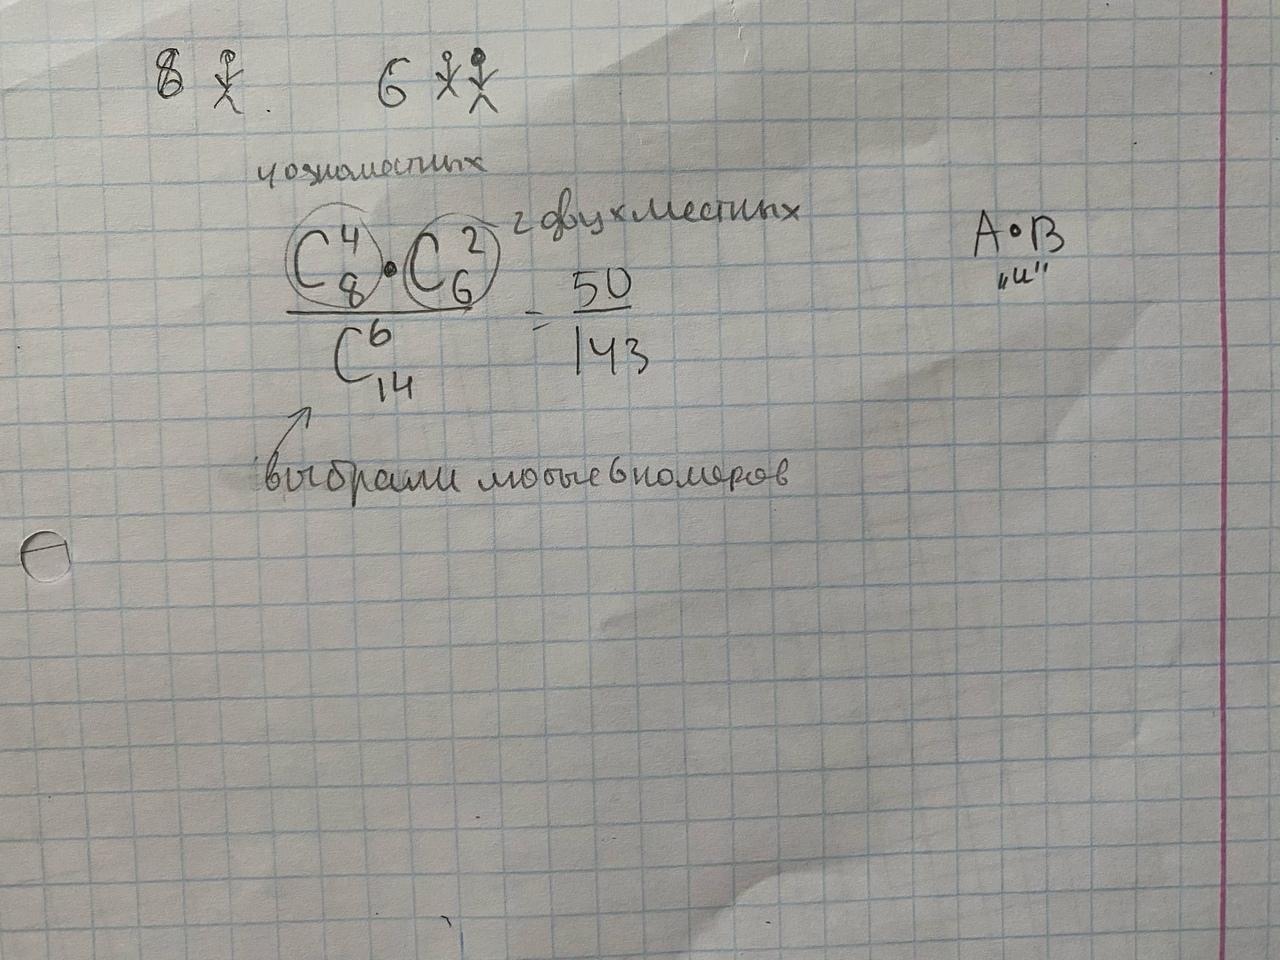 8 6
4 одноместных
C₈⁴ • C₆² 2 двухместных
C₁₄⁶ = 50/143
A • B
„и"
выбрали любые 6 номеров